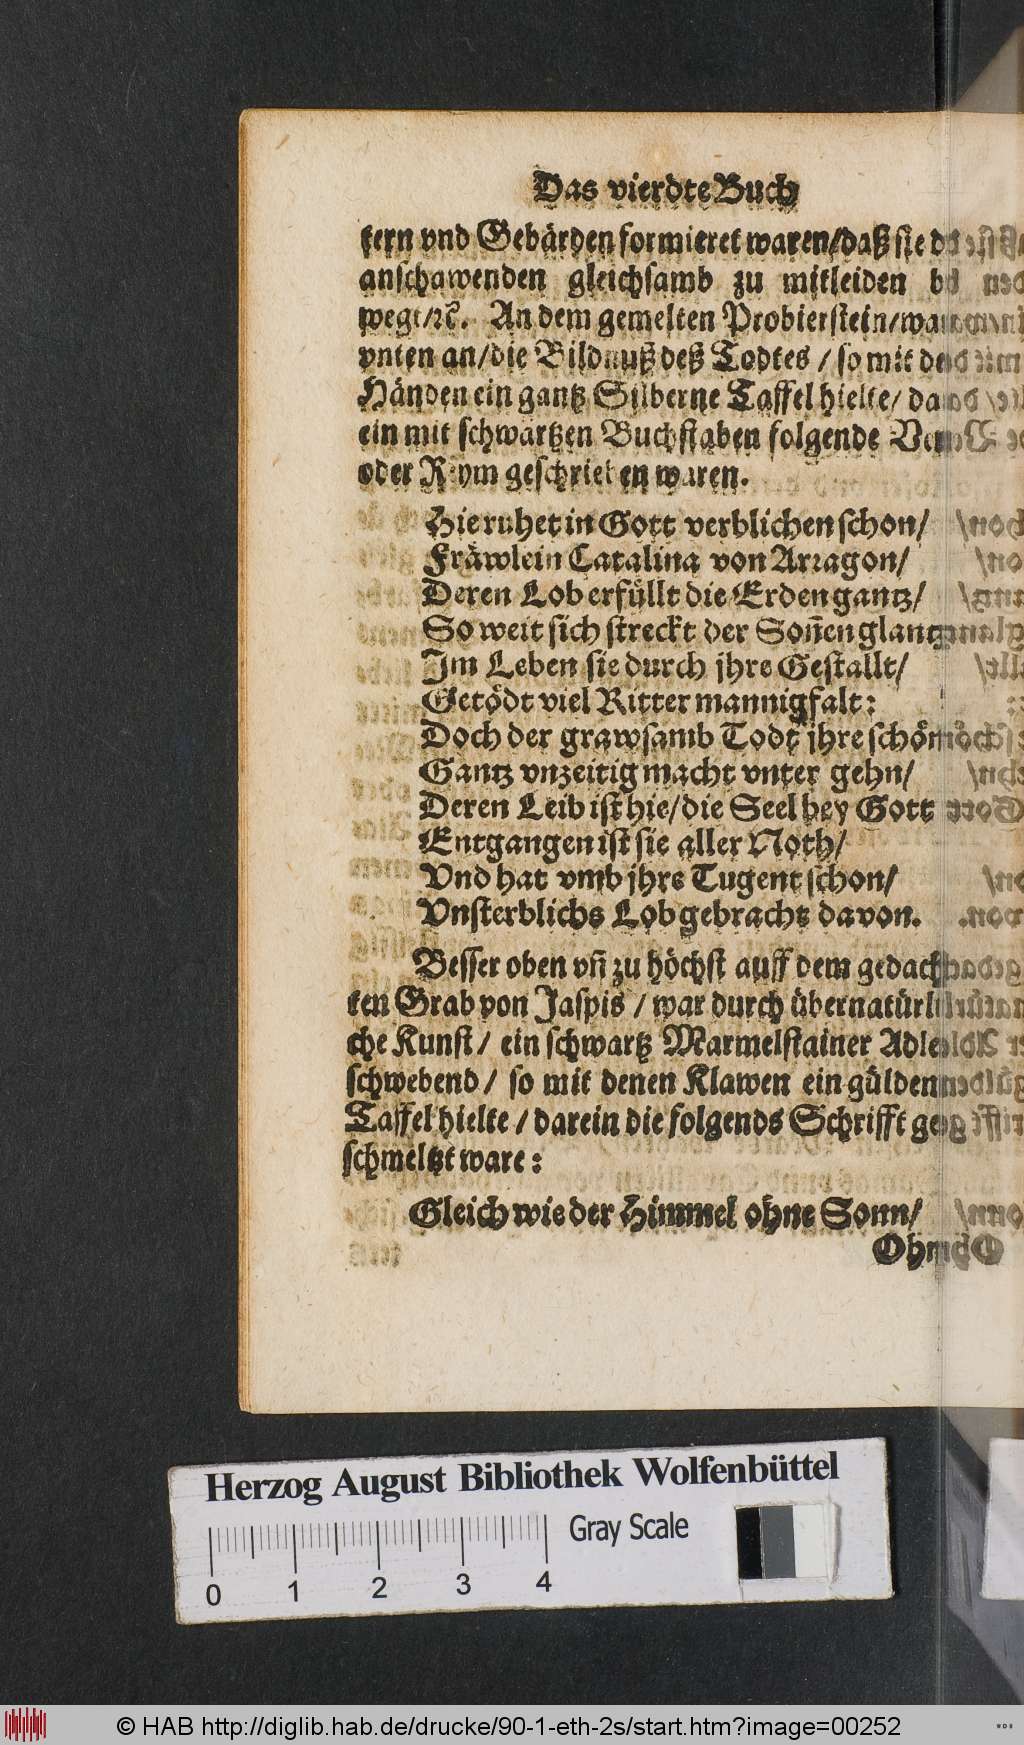 Das vierdte Buch
tern vnd Gebärden formieret waren/daß sie
anschawenden gleichsamb zu mitleiden
wegt/ꝛc. An dem gemelten Probierstein/war
vnten an/die Bildnuß deß Todtes / so mit
Händen ein gantz Silberne Taffel hielte/
ein mit schwartzen Buchstaben folgende
oder Reym geschrieben waren.
Hie ruhet in Gott verblichen schon/
Fräwlein Catalina von Arragon/
Deren Lob erfüllt die Erden gantz/
So weit sich streckt der Soñen glantz
Im Leben sie durch jhre Gestallt/
Getödt viel Ritter mannigfalt:
Doch der grawsamb Todt jhre schön
Gantz vnzeitig macht vnter gehn/
Deren Leib ist hie/die Seel bey Gott
Entgangen ist sie aller Noth/
Vnd hat vmb jhre Tugent schon/
Vnsterblichs Lob gebracht davon.
Besser oben vñ zu höchst auff dem gedach
ten Grab von Jaspis / war durch übernatürli
che Kunst/ ein schwartz Marmelstainer Adler
schwebend/ so mit denen Klawen ein gülden
Taffel hielte / darein die folgends Schrifft ge
schmeltzt ware:
Gleich wie der Himmel ohne Sonn/
Herzog August Bibliothek Wolfenbüttel
Gray Scale
0 1 2 3 4
© HAB http://diglib.hab.de/drucke/90-1-eth-2s/start.htm?image=00252